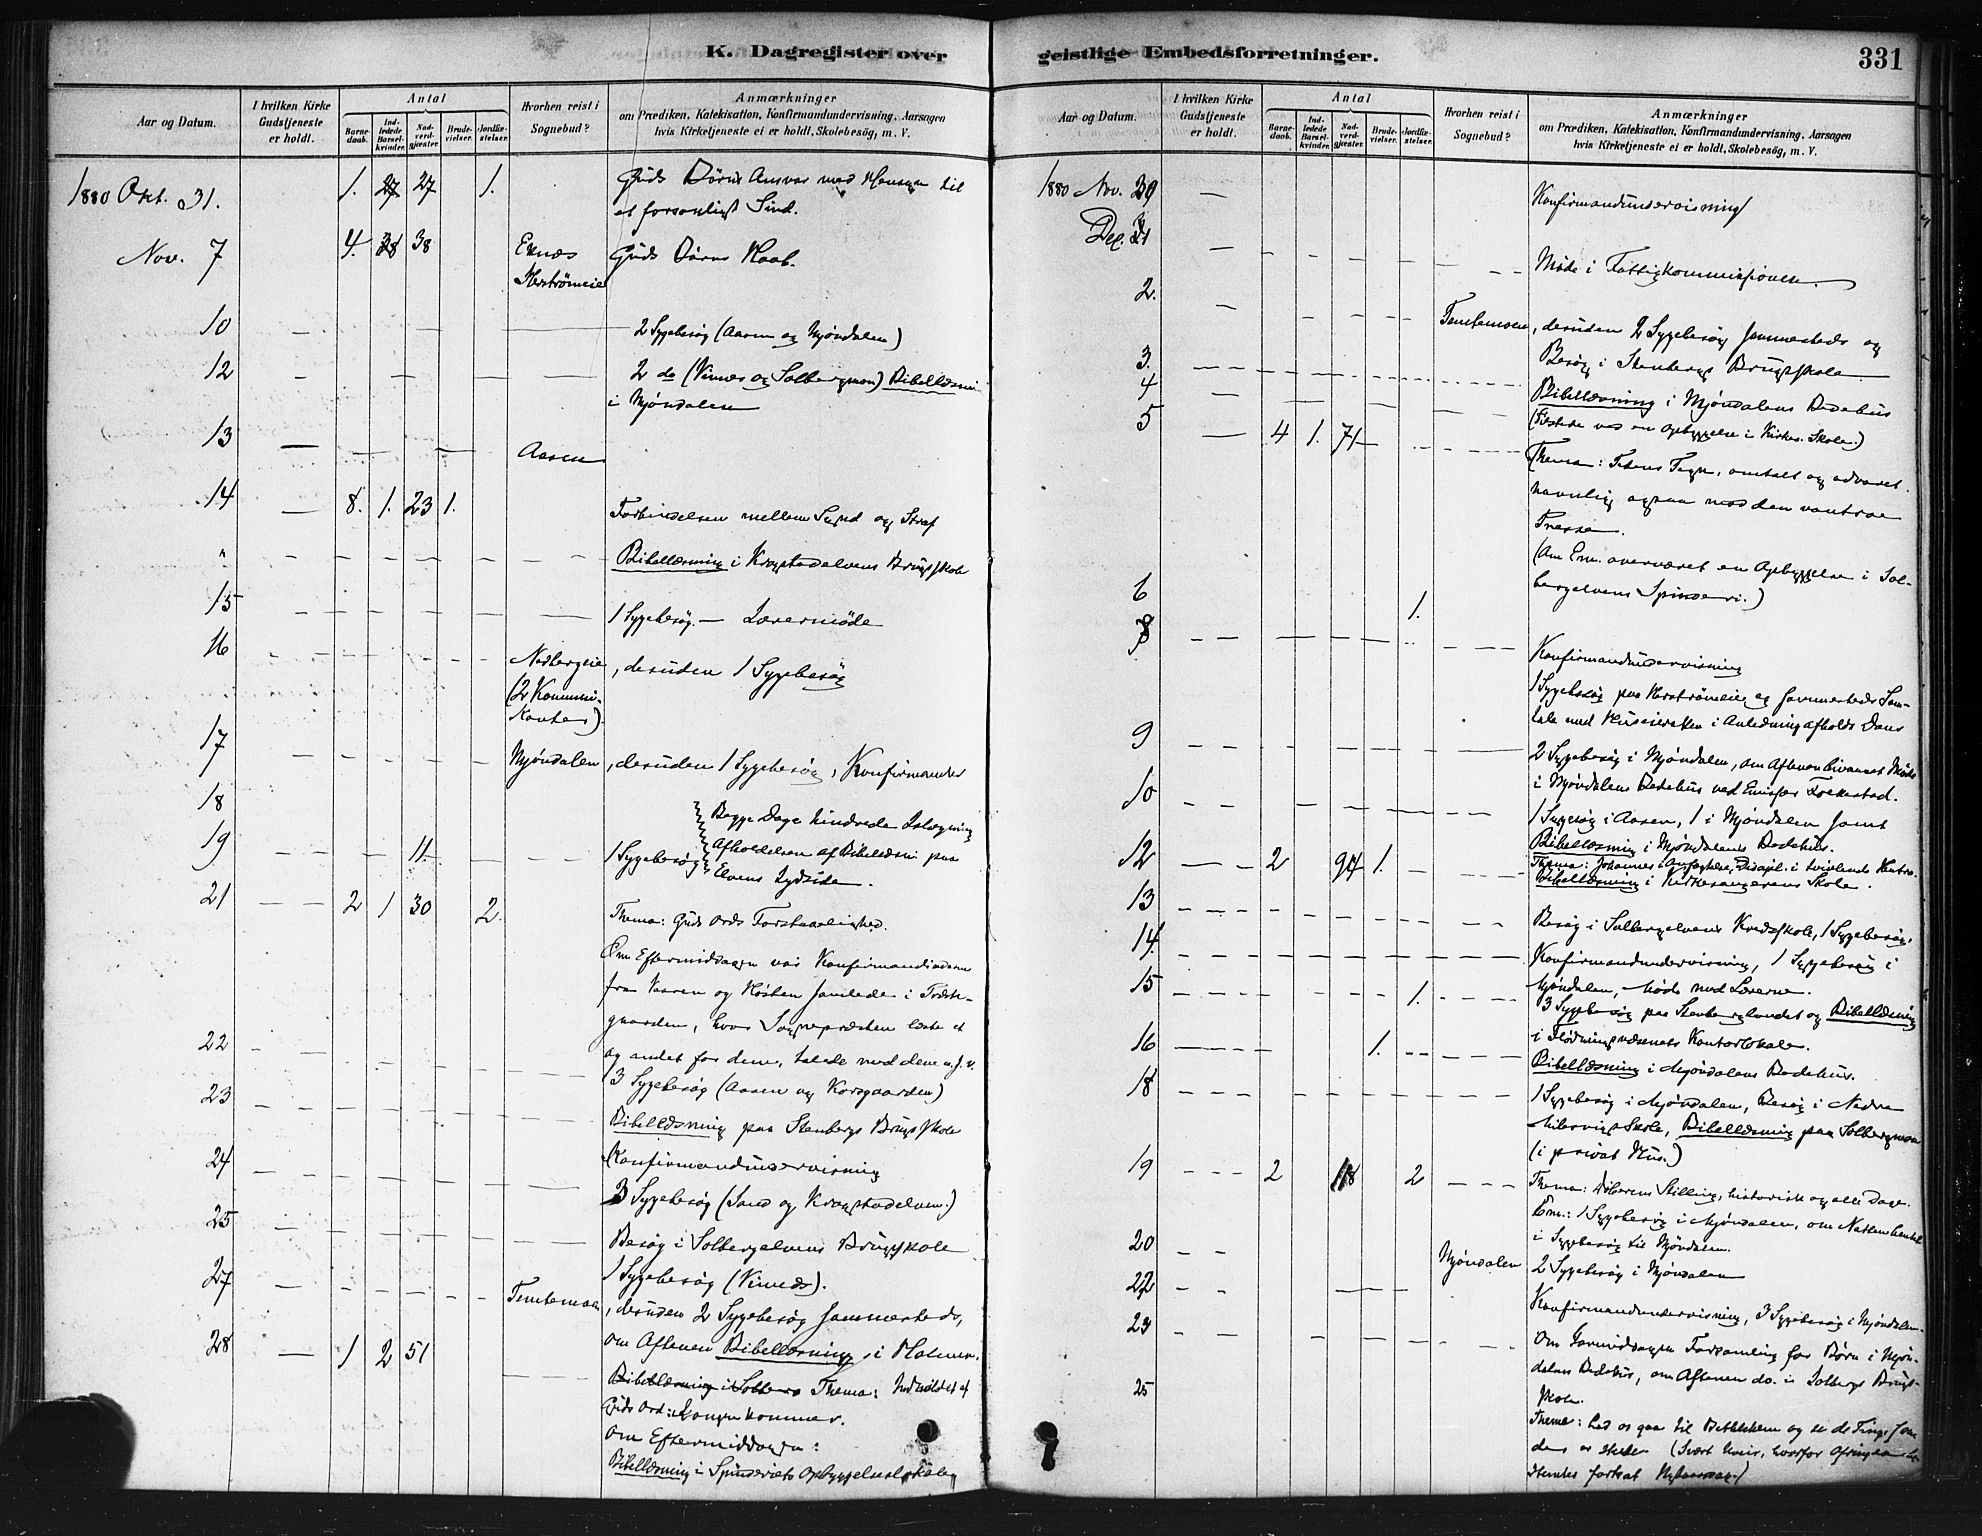 K. Dagregister over
geistlige Embedsforretninger.
331
Aar og Datum.
I hvilken Kirke Gudstjeneste er holdt.
Antal
Barnedaab.
Indledede Barselkvinder.
Nadverdgjæster.
Brudevielser.
Jordfæstelser.
Hvorhen reist i Sognebud?
Anmærkninger
om Prædiken, Katekisation, Konfirmandundervisning, Aarsagen
hvis Kirketjeneste ei er holdt, Skolebesøg, m. V.
1880 Okt. 31. 1. 27 27 1. Guds Børns Ansvar med Hensyn til
et forsonligt Sind.
Nov. 7 4. 38 38 Eknæs Guds Børns Haab.
Herstrømeie
10 2 Sygebesøg (Aasen og Mjøndalen)
12 2 do (Vinnes og Solbergmoen) Bibellæsn.
i Mjøndalen
13 Aasen
14 8. 1. 23 1. Forbindelsen mellem Synd og Straf
" Bibellæsning i Krogstadelvens Brugsskole
15 1 Sygebesøg. – Lærermøde
16 Nedbergeie, desuden 1 Sygebesøg
(2 Kommuni-
kanter)
17 Mjøndalen, desuden 1 Sygebesøg, Konfirmander
18 Begge Dage hindrede Islægning
19 11. 1 Sygebesøg Afholdelsen af Bibellæsn paa
Elvens Sydside.
21 2 1 30 2. Thema: Guds Ords Forstaaelighed.
Om Eftermiddagen var Konfirmandinderne
fra Vaaren og Høsten samlede i Præste-
gaarden, hvor Sognepræsten læste et
og andet for dem, talede med dem o.s.v.
22 3 Sygebesøg (Aasen og Korsgaarden)
23 Bibellæsning paa Stenbergs Brugsskole
24 Konfirmandundervisning
3 Sygebesøg (Sand og Krogstadelven.)
25 Besøg i Solbergelvens Brugsskole
27 1 Sygebesøg (Vinnes).
Temtemoen, desuden 2 Sygebesøg sammesteds,
28 1 2 51 om Aftenen Bibellæsning i Holmen.
Thema: Indholdet af
Guds Ord: Kongen kommer.
Om Eftermiddagen:
Bibellæsning i Spinderiets Opbyggelseslokale
Aar og Datum.
I hvilken Kirke Gudstjeneste er holdt.
Antal
Barnedaab.
Indledede Barselkvinder.
Nadverdgjæster.
Brudevielser.
Jordfæstelser.
Hvorhen reist i Sognebud?
Anmærkninger
om Prædiken, Katekisation, Konfirmandundervisning, Aarsagen
hvis Kirketjeneste ei er holdt, Skolebesøg, m. V.
1880 Nov. 30 Konfirmandundervisning
Dec. 1 Møde i Fattigkommissionen
2. Temtemoen, desuden 2 Sygebesøg sammesteds og
Besøg i Stenbergs Brugsskole
3. Bibellæsning i Mjøndalens Bedehus
4 (Tilstede ved en Opbyggelse i Kirkes. Skole.)
5 4 1. 71 Thema: Tidens Tegn, omtalt og advaret
navnlig ogsaa mod den vantroe
Presse.
(Om Em. overværet en Opbyggelse i Sol-
bergelvens Spinderi.)
6 1.
8 Konfirmandundervisning
1 Sygebesøg paa Herstrømeie og sammesteds Sam-
tale med Huseieren i Anledning afholdt Dans
9 2 Sygebesøg i Mjøndalen, om Aftenen bivaanet Møde
i Mjøndalens Bedehus ved Emissær Lockertsad.
10 1 Sygebesøg i Aasen, 1 i Mjøndalen samt
Bibellæsning i Mjøndalens Bedehus.
12 2 94 1. Thema: Johannes i Anfægtelse,
Bibellæsning i Kirkesangerens Skole.
13 Besøg i Solbergelvens Kredsskole, 1 Sygebesøg.
14. Konfirmandundervisning, 1 Sygebesøg i
Mjøndalen, Møde med Lærerne.
15 1. 3 Sygebesøg paa Stenberglandet og Bibellæsning
i Flødningsvæsenets Kontorlokale.
16 1. Bibellæsning i Mjøndalens Bedehus.
18 1 Sygebesøg i Mjøndalen, Besøg i Nedre
Skole, Bibellæsning paa Solbergmoen
(i privat Hus.)
19 2 118 2 Thema: Døberens Stilling, historisk og alle Dage.
Em.: 1 Sygebesøg i Mjøndalen, om Natten hentet
i Sygebesøg til Mjøndalen.
20 Mjøndalen 2 Sygebesøg i Mjøndalen
22 Konfirmandundervisning, 3 Sygebesøg i Mjøndalen.
23 Om Formiddagen Forsamling for Børn i Mjøn-
dalens Bedehus, om Aftenen do. i Solbergs Brugs-
skole.
25 Thema: Lad os gaa til Bethlehem og se de Ting som
der er skede (Svært Veir, hvorfor
fortsat